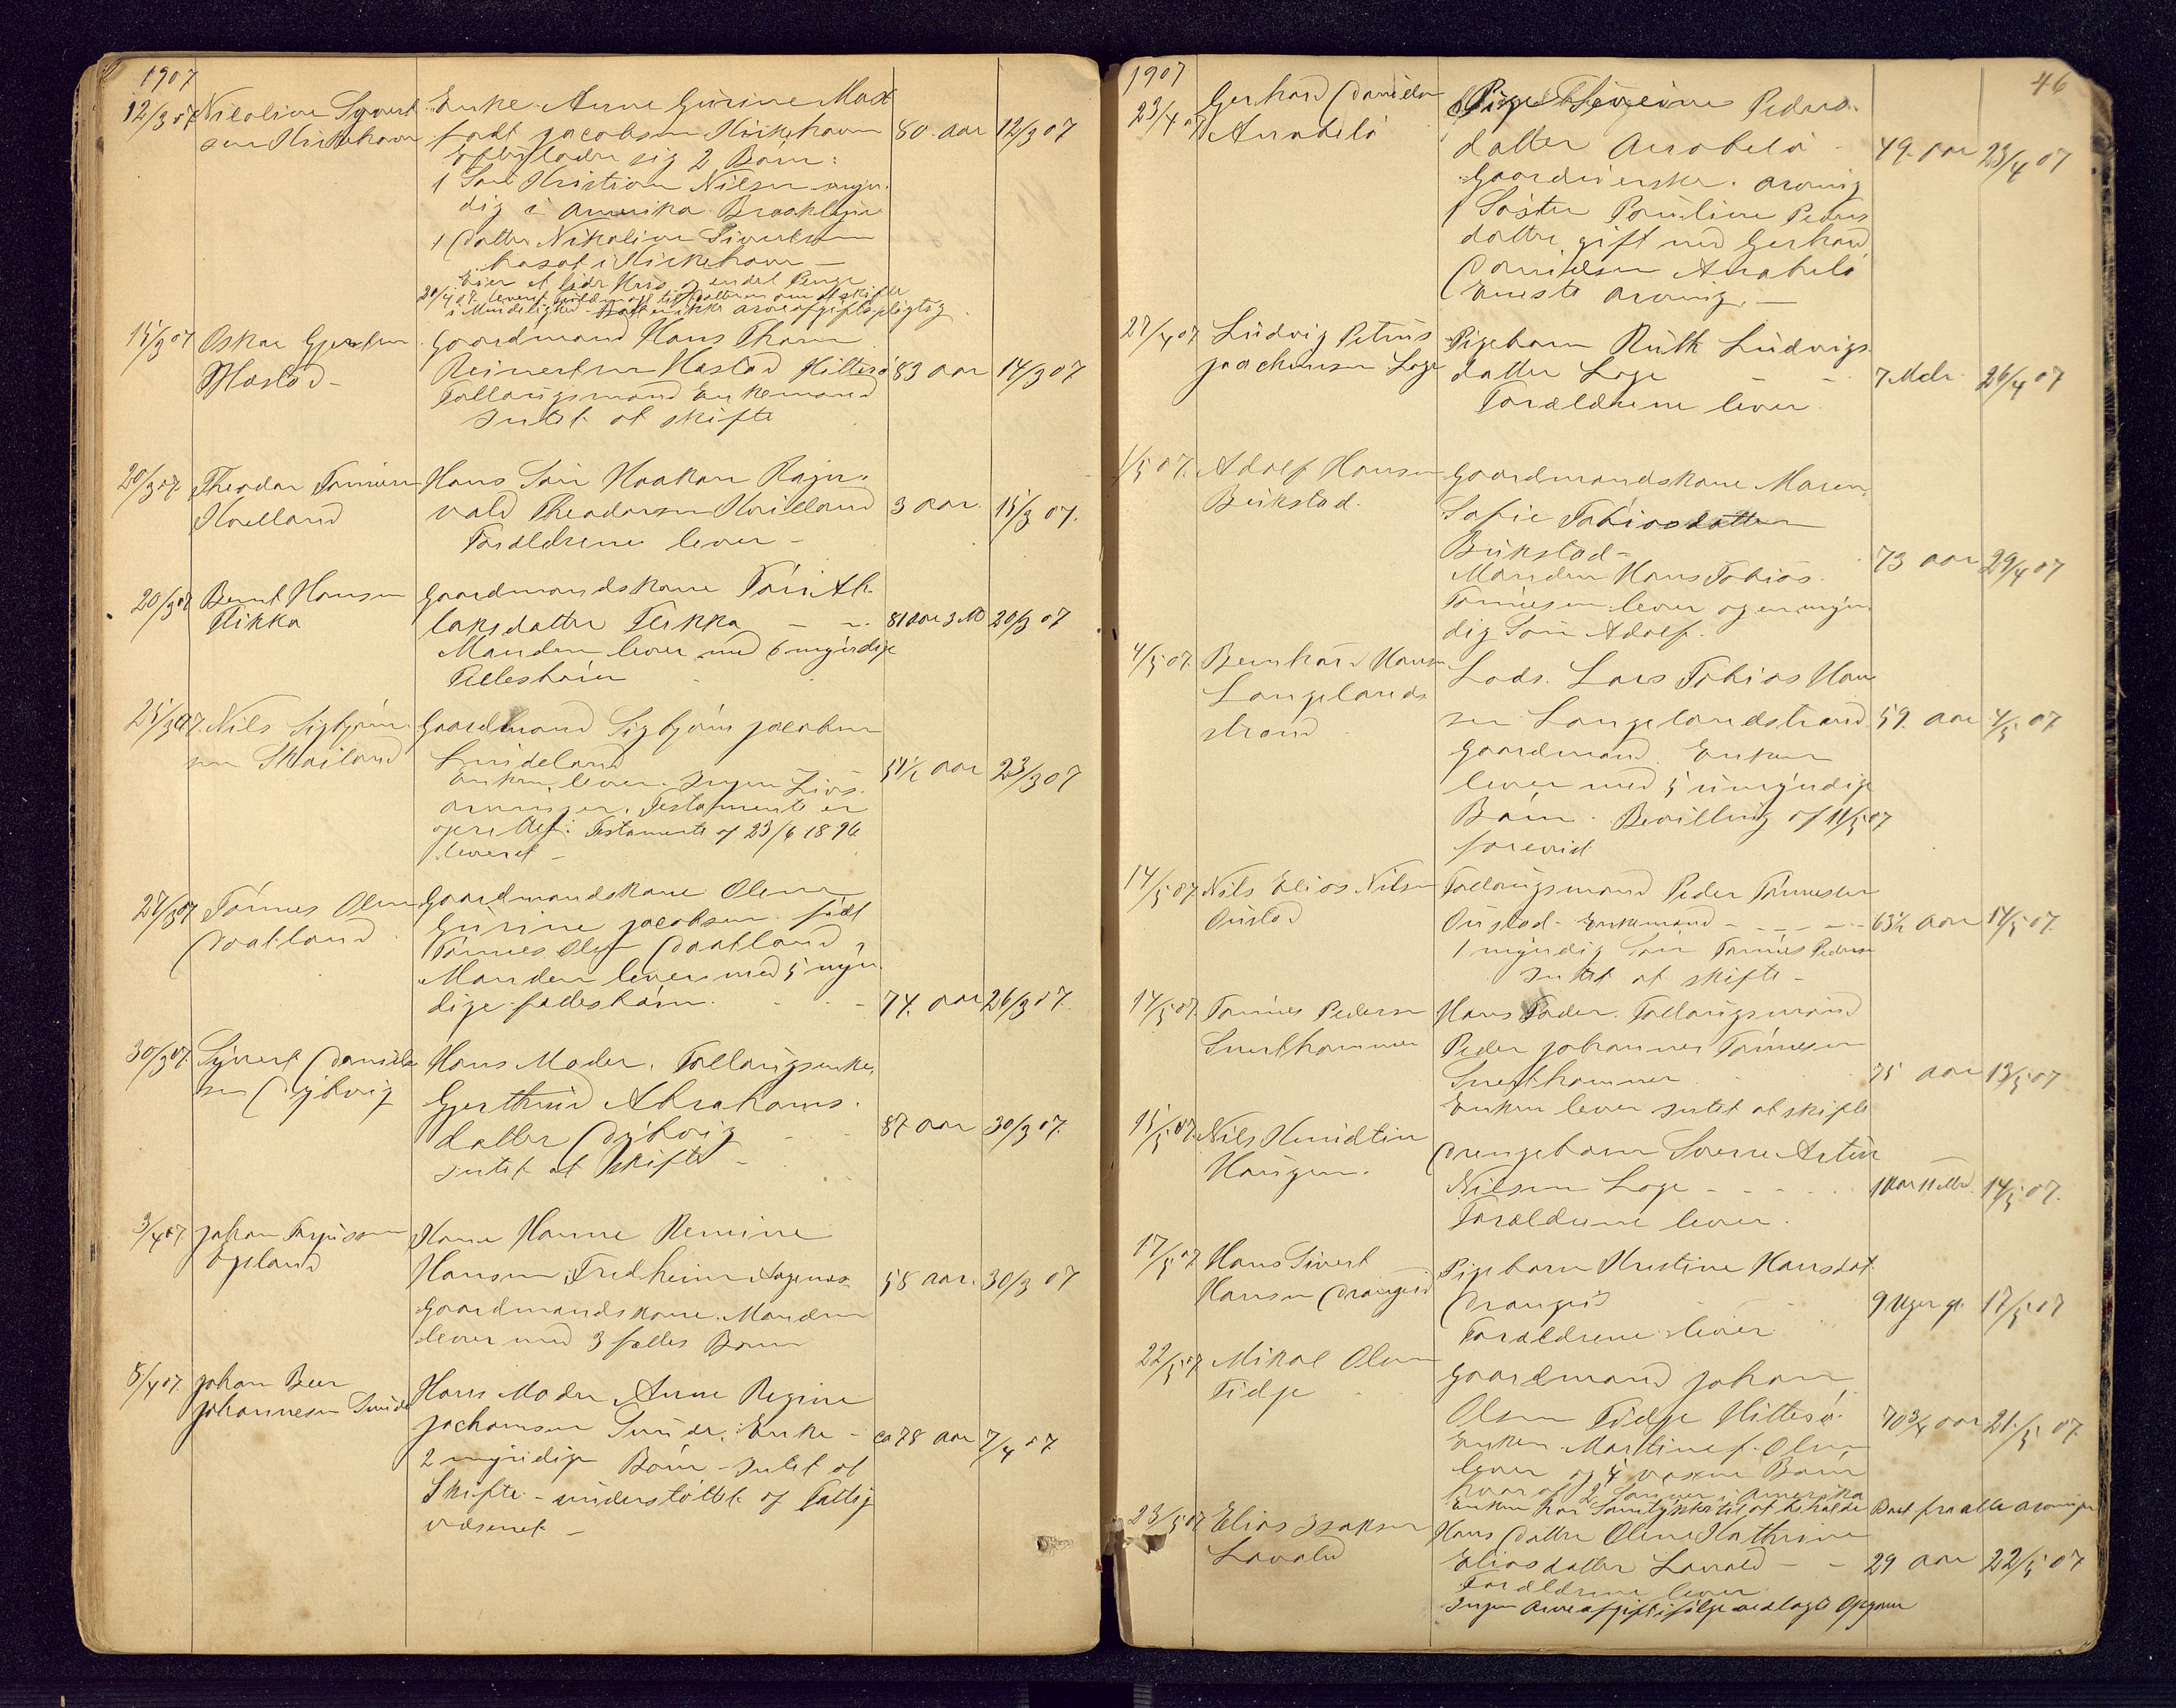 1907
12/3 07 Nicoline Syvert
sen Kirkehavn
Enke Anne Gurine Max
født Jacobsen Kirkehavn
Efterlader sig 2 Børn:
1 Søn Kristian Nilsen myn
dig i Amerika. Brooklyn
1 Datter Nikoline Sivertsen
bosat i Kirkehavn —
Eier et lidet Hus og endel Penge
i Mindelighed
arveafgiftspligtig
80 aar 12/3 07
15/3 07 Oskar Gjertsen
Mastad —
Gaardmand Hans Thom
Reinertsen Mastad Hitterø
Follaugsmand Enkemand
Intet at skifte
83 aar 14/3 07
20/3 07. Theodor Tønnesen
Hans Søn Haakon Ragn
vald Theodorsen
Forældrene lever —
3 aar 15/3 07.
20/3 07 Bernt Hansen
Flikka
Gaardmandskone
laksdatter Flikka — —
Manden lever med 6 myndige
Fellesbørn
81 aar 3 M 20/3 07
25/3 07. Nils Sigbjørn
sen
Gaardmand Sigbjørn Jacobsen
Lindeland
Enken lever. Ingen Livs
arvinger. Testamente er
oprettet. Testamente af 23/6 1896
leveret —
51½ aar 23/3 07
27/3 07 Tønnes Olsen
Daatland
Gaardmandskone Olene
Gurine Jacobsen født
Tønnes Olsen Daatland,
Manden lever med 5 myn
dige fellesbørn. — —
74. aar 26/3 07.
30/3 07. Syvert Daniel
sen Dybvig
Hans Moder, Follaugsenke,
Gjerthrud Abrahams
datter Dybvig — —
Intet at skifte —
87 aar 30/3 07.
3/4 07 Johan Torjussen
Egeland
Kone Hanne Remine
Hansen Fredheim
Gaardmandskone. Manden
lever med 3 fælles Børn
58 aar. 30/3 07
8/4 07. Johan Beer
Johannesen Sunde
Hans Moder Anne Regine
Jochomsen Sunde. Enke —
2 myndige Børn — Intet at
Skifte — understøttet af Fattig
væsenet —
ca 78 aar 7/4 07.
46
1907
23/4 07 Gerhard Danielsen
Anabelø
Pige Severine Peders
datter Anabelø —
Gaardeierske. Arving
1 Søster Pauline Peders
datter gift med Gerhard
Danielsen Anabelø
Eneste Arving. —
49. aar 23/4 07
27/4 07 Ludvig Petrus
Jochumsen Loge
Pigebarn Ruth Ludvigs
datter Loge — —
Forældrene lever
7 Mdr. 26/4 07
1/5 07. Adolf Hansen
Bukstad.
Gaardmandskone Maren
Sofie Tobiasdatter
Bukstad —
Manden Hans Tobias
Tønnesen lever og en myn
dig Søn Adolf.
73 aar 29/4 07
4/5 07. Bernhard Hansen
Langelands
strand
Lods. Lars Tobias Han
sen Langelandstrand
Gaardmand. Enken
lever med 5 umyndige
Børn. Bevilling af 11/5 07
forevist
59. aar 4/5 07
14/5 07 Nils Elias Nilsen
Oustad
Follaugsmand Peder Tønnesen
Oustad — Enkemand — — —
1 myndig Søn Tønnes Pedersen
Intet at skifte —
63½ aar 14/5 07.
14/5 07. Tønnes Pedersen
Hans Fader. Follaugsmand
Peder Johannes Tønnesen
Enken lever intet at skifte
75 aar 13/5 07
15/5 07. Nils
Haugen.
Drengebarn Sverre Artur
Nilsen Loge — — —
Forældrene lever.
1 aar 11 Mdr. 14/5 07.
17/5 07. Hans Sivert
Hansen Drangeid
Pigebarn Kristine Hansdat.
Drangeid
Forældrene lever
9 Uger gl. 17/5 07
22/5 07. Mikal Olsen
Fidje
Gaardmand Johan
Olsen Fidje Hitterø.
Enken Martine f. Olsen
lever og 4 voxne Børn
hvoraf 2 Sønner i Amerika
Enken har Samtykke til at beholde Boet fra alle arvinger
70¾ aar 21/5 07.
23/5 07 Elias Isaksen
Lavold
Hans Datter Olene Kathrine
Eliasdatter Lavold — —
Forældrene lever
Ingen Arveafgift ifølge vedlagte Opgave
29 aar 22/5 07